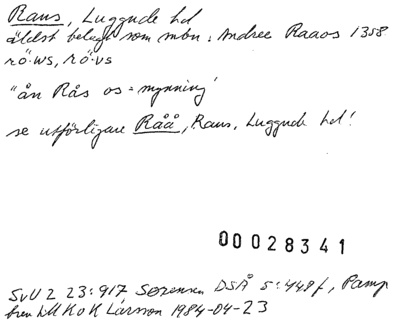 Raus, Luggude hd
äldst belagt som mbn: Andree Raaos 1358
rö·ws, rö·vs
"ån Rås os = mynning'
se utförligare Råå, Raus, Luggude hd!
00028341
SvU 2 23:917, Sørensen DSÅ 5:448f, Pamp
brev till K o K Larsson 1984-04-23